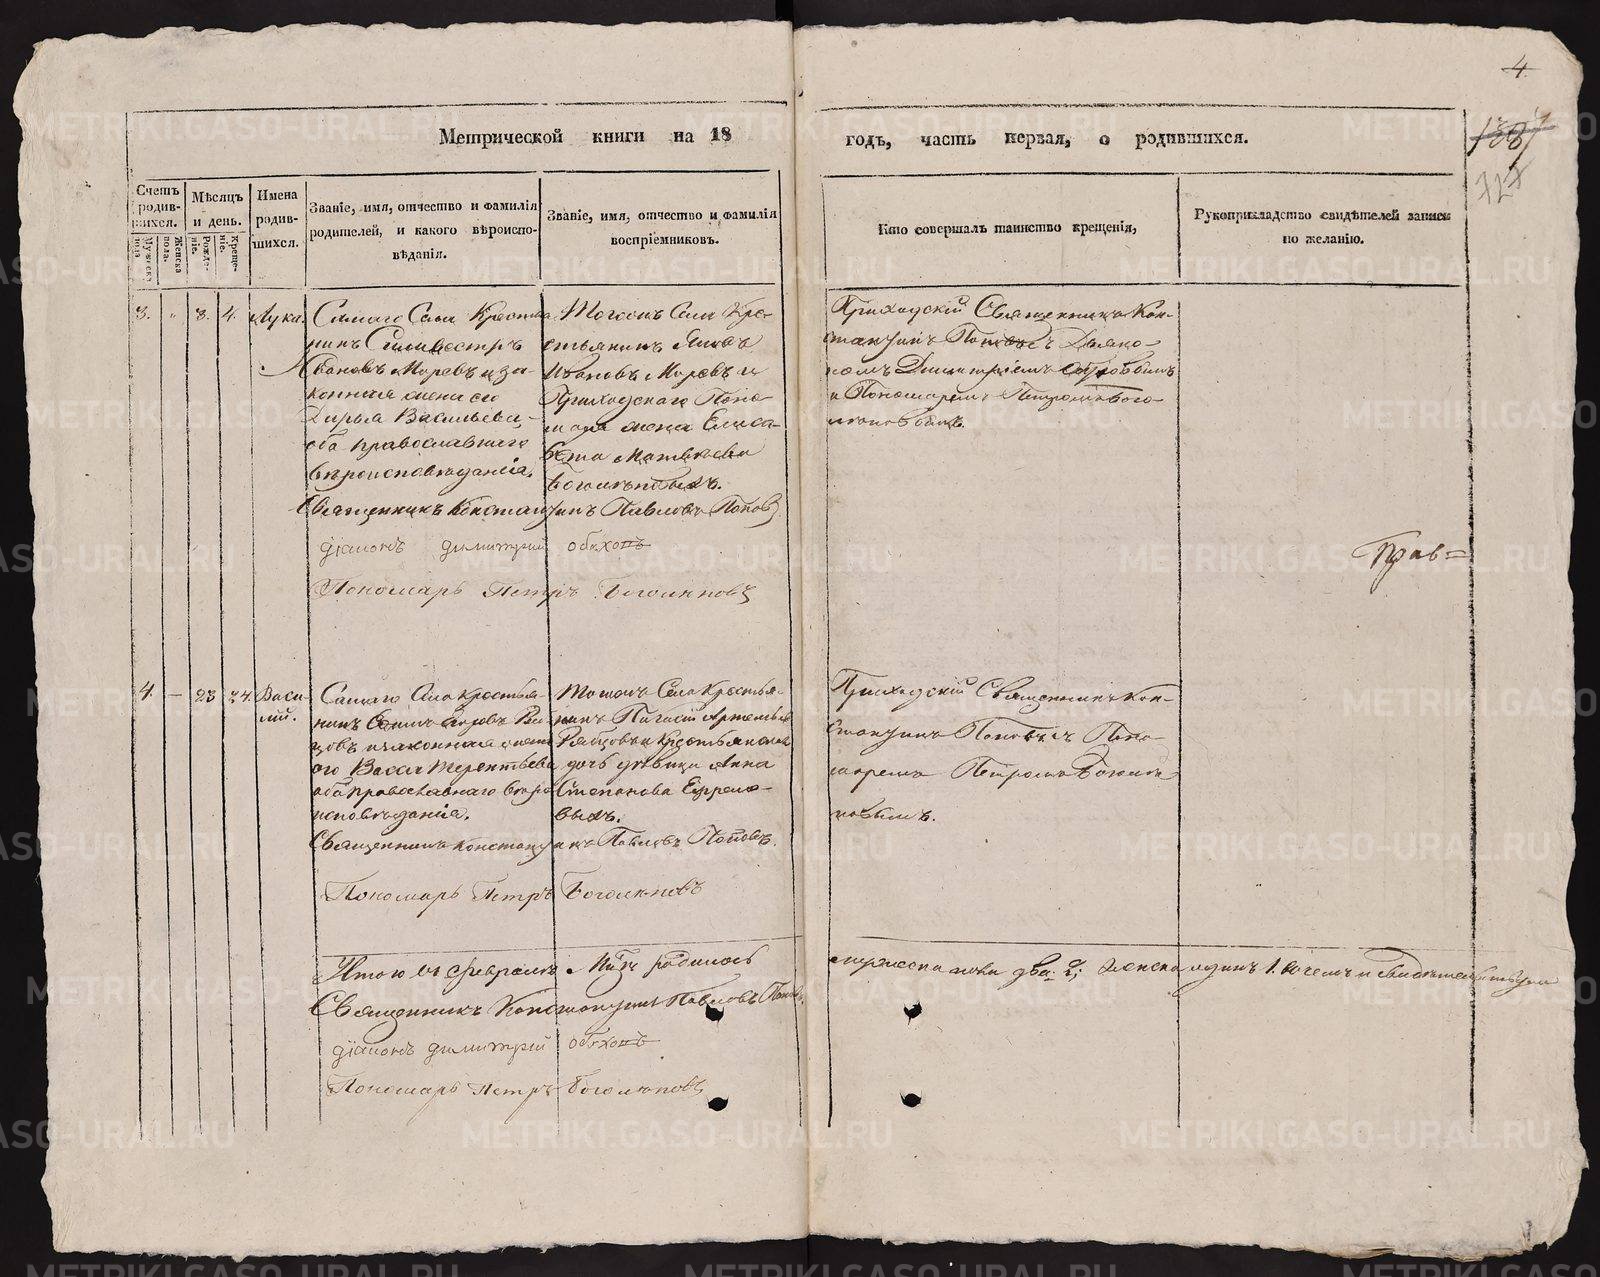 4.
Метрической книги на 18
годъ, часть первая, о родившихся.
187
727
Счетъ родившихся.
Мужеска пола.
Женска пола.
Мѣсяцъ и день.
Рожденіе.
Крещеніе.
Имена родившихся.
Званіе, имя, отчество и фамилія
родителей, и какого вѣроиспо-
вѣданія.
Званіе, имя, отчество и фамилія
воспріемниковъ.
Кто совершалъ таинство крещенія,
Рукоприкладство свидѣтелей записи
по желанію.
3. 3. 4. Лука.
Самаго Села Крестья
нинъ Силивестръ
Ивановъ Моревъ и за-
конная жена его
Дарья Васильева,
оба православнаго
вѣроисповѣданія.
Тогожъ Села Кре-
стьянинъ Яковъ
Ивановъ Моревъ и
Приходскаго Поно-
маря жена Елиса-
вета Матвѣева
Боголѣпова.
Приходскій Священникъ Кон-
стантинъ Поповъ съ Діако-
номъ Димитріемъ
и Пономаремъ Петромъ Бого-
Священникъ Константинъ Павловъ Поповъ
діаконъ димитрій
Пономарь Петръ Боголѣповъ
Прав=
4. — 23 24. Васи-
лій.
Самаго Села крестья-
нинъ
и законная жена
его Васса Терентьева
оба православнаго вѣро
исповѣданія.
Тогожъ Села Крестья-
нинъ Артемьевъ
дочь дѣвица Анна
Степанова Ефремо-
выхъ.
Приходскій Священникъ Кон-
стантинъ Поповъ съ Поно-
маремъ Петромъ Боголѣ-
повымъ.
Священникъ Константинъ Павловъ Поповъ.
Пономарь Петръ Боголѣповъ
Итого въ февралѣ Мцѣ родилось
мужеска пола два. 2; женска одинъ 1.
Священникъ Константинъ Павловъ Поповъ
діаконъ димитрій
Пономарь Петръ Боголѣповъ
METRIKI.GASO-URAL.RU